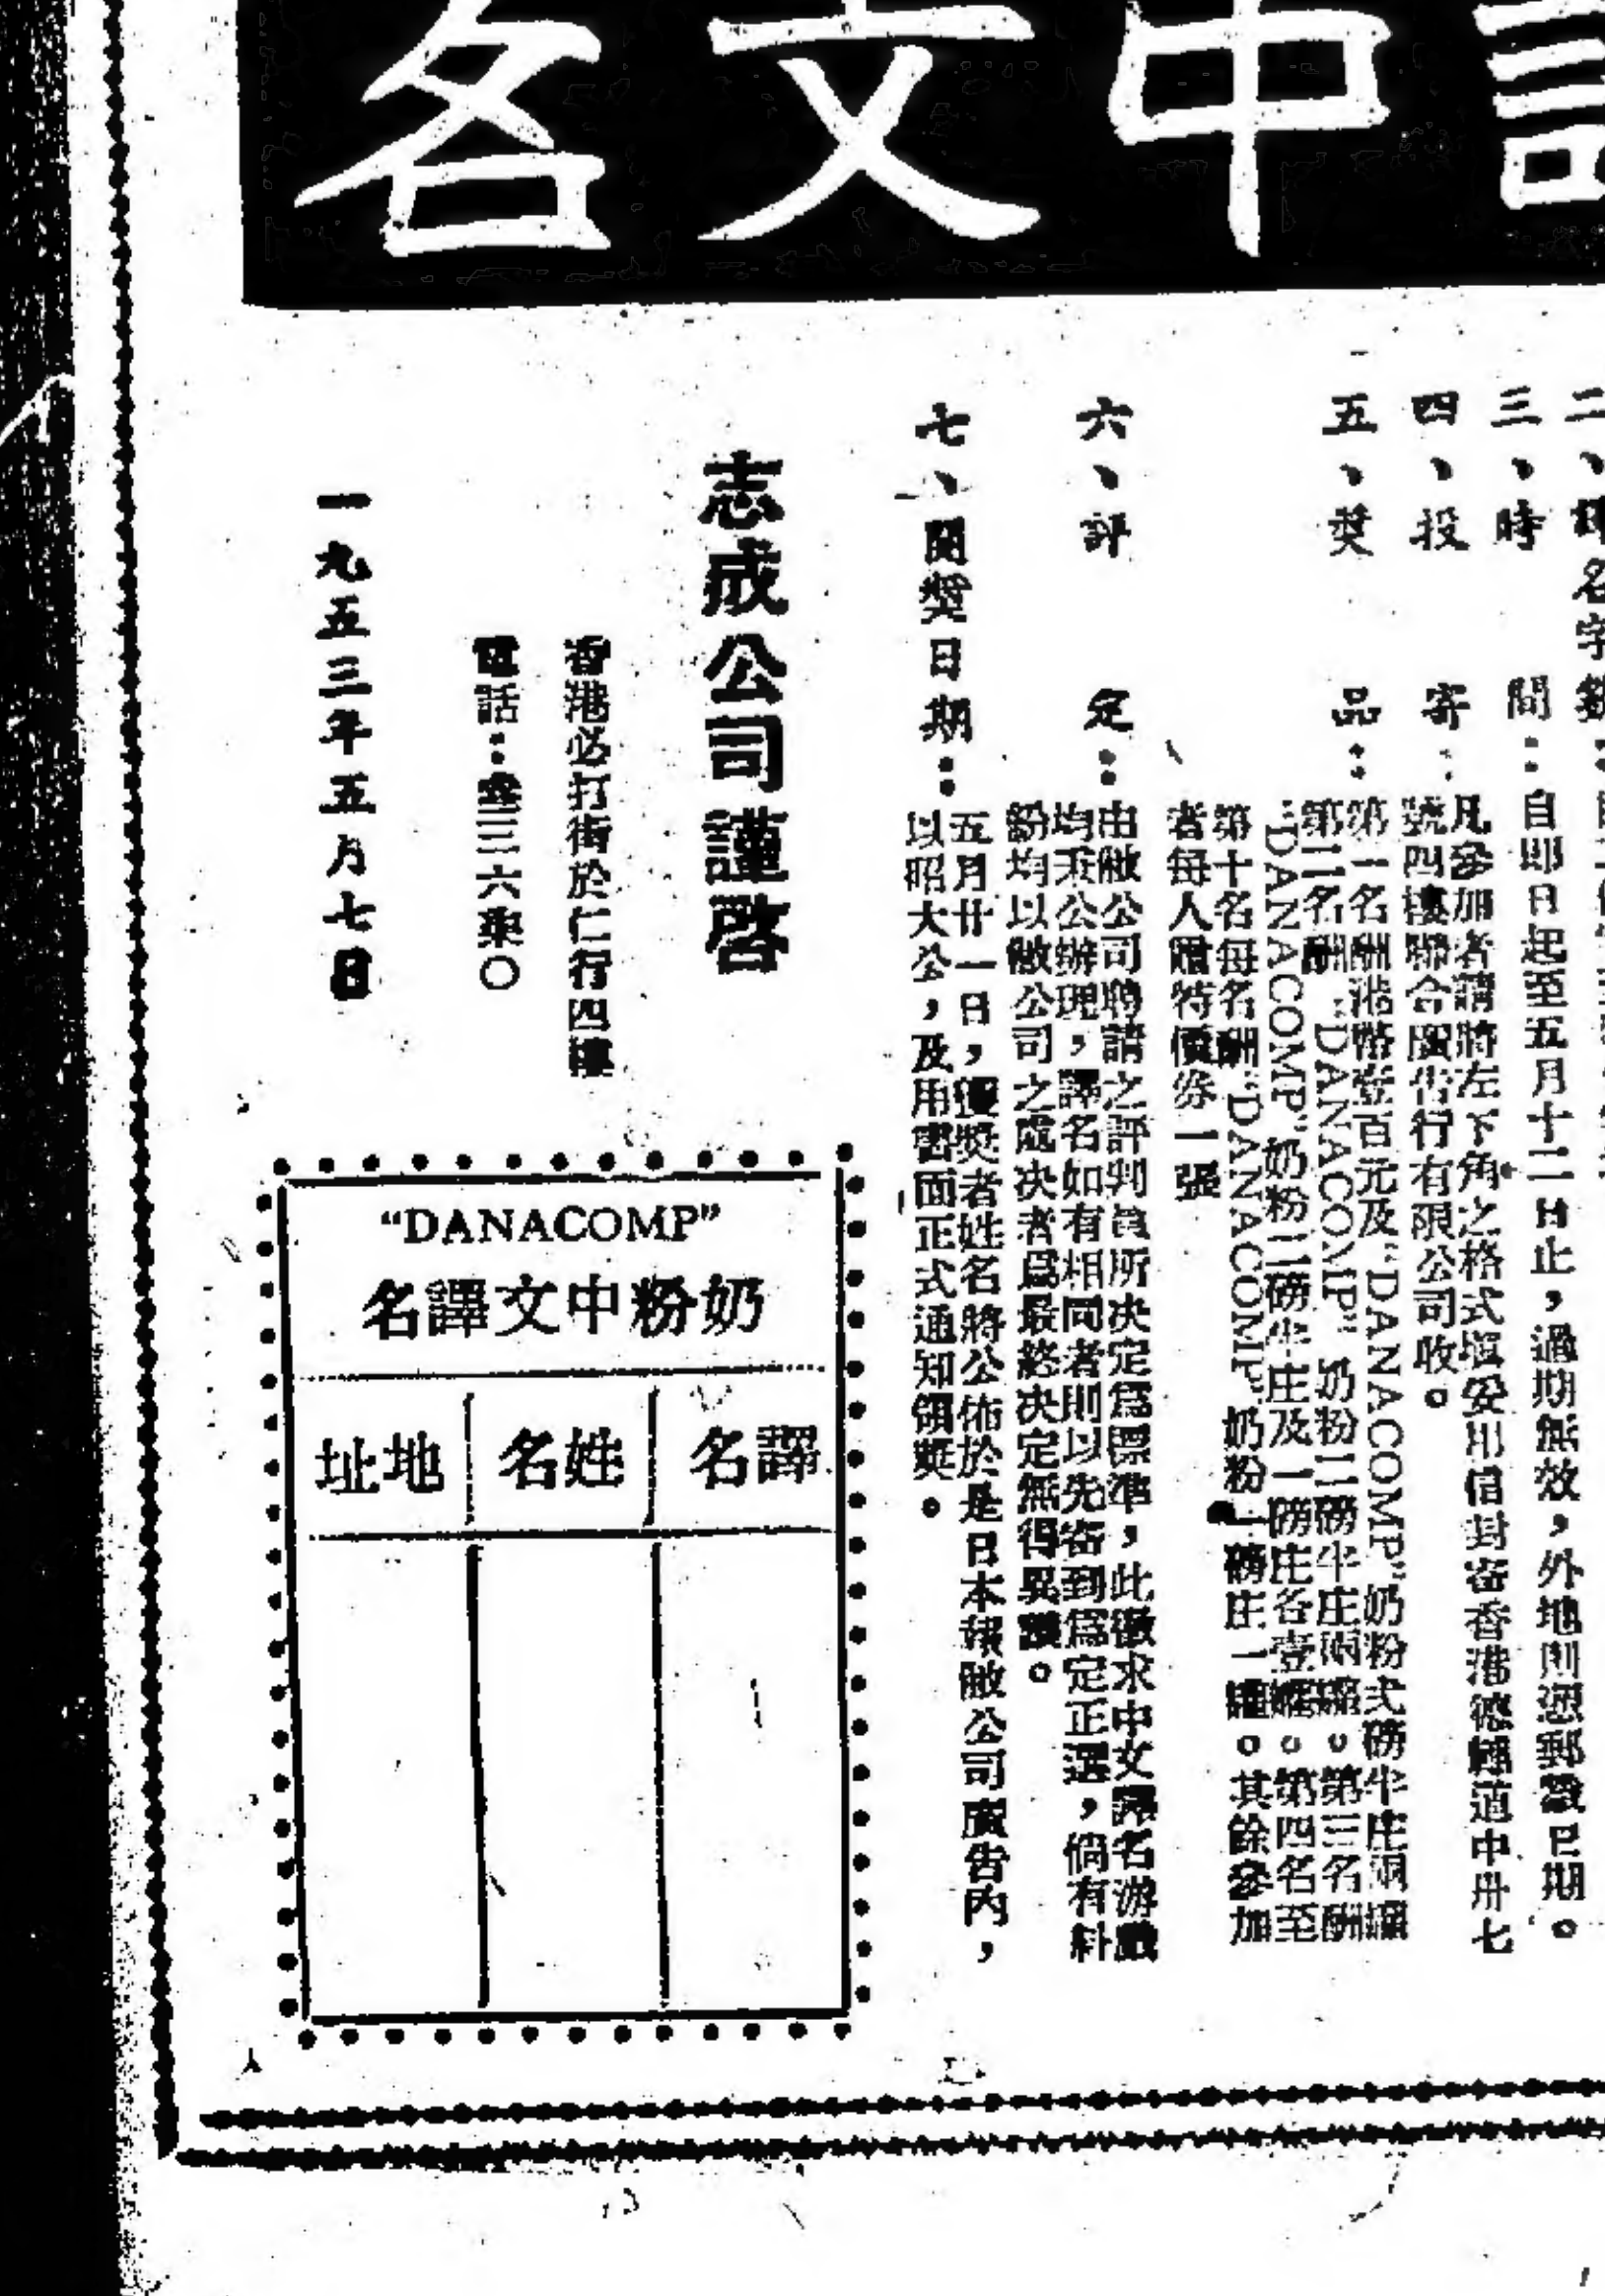 中文名
二、
三、時間：自即日起至五月十二日止，過期無效，外地則憑郵戳日期。
四、投寄：凡參加者請將左下角之格式塡妥用信封寄香港德輔道中卅七
號四樓聯合廣告行有限公司收。
五、獎品：第一名酬港幣壹百元及“DANACOMP”奶粉式磅半庄兩罐
第二名酬“DANACOMP”奶粉二磅半庄兩罐。第三名酬
“DANACOMP”奶粉二磅半庄及一磅庄各壹罐。第四名至
第十名每名酬“DANACOMP”奶粉一磅庄一罐。其餘參加
者每人贈特價券一張
六、評定：由敝公司聘請之評判員所决定爲標準，此徵求中文譯名游戲
均秉公辦理，譯名如有相同者則以先寄到爲定正選，倘有糾
紛均以敝公司之處决者爲最終决定無得異議。
七、開獎日期：五月廿一日，獲獎者姓名將公佈於是日本報敝公司廣告內，
以昭大公，及用書面正式通知領獎。
志成公司謹啓
香港必打街於仁行四樓
電話：叁三六柒〇
一九五三年五月七日
“DANACOMP”
名譯文中粉奶
址地 名姓 名譯